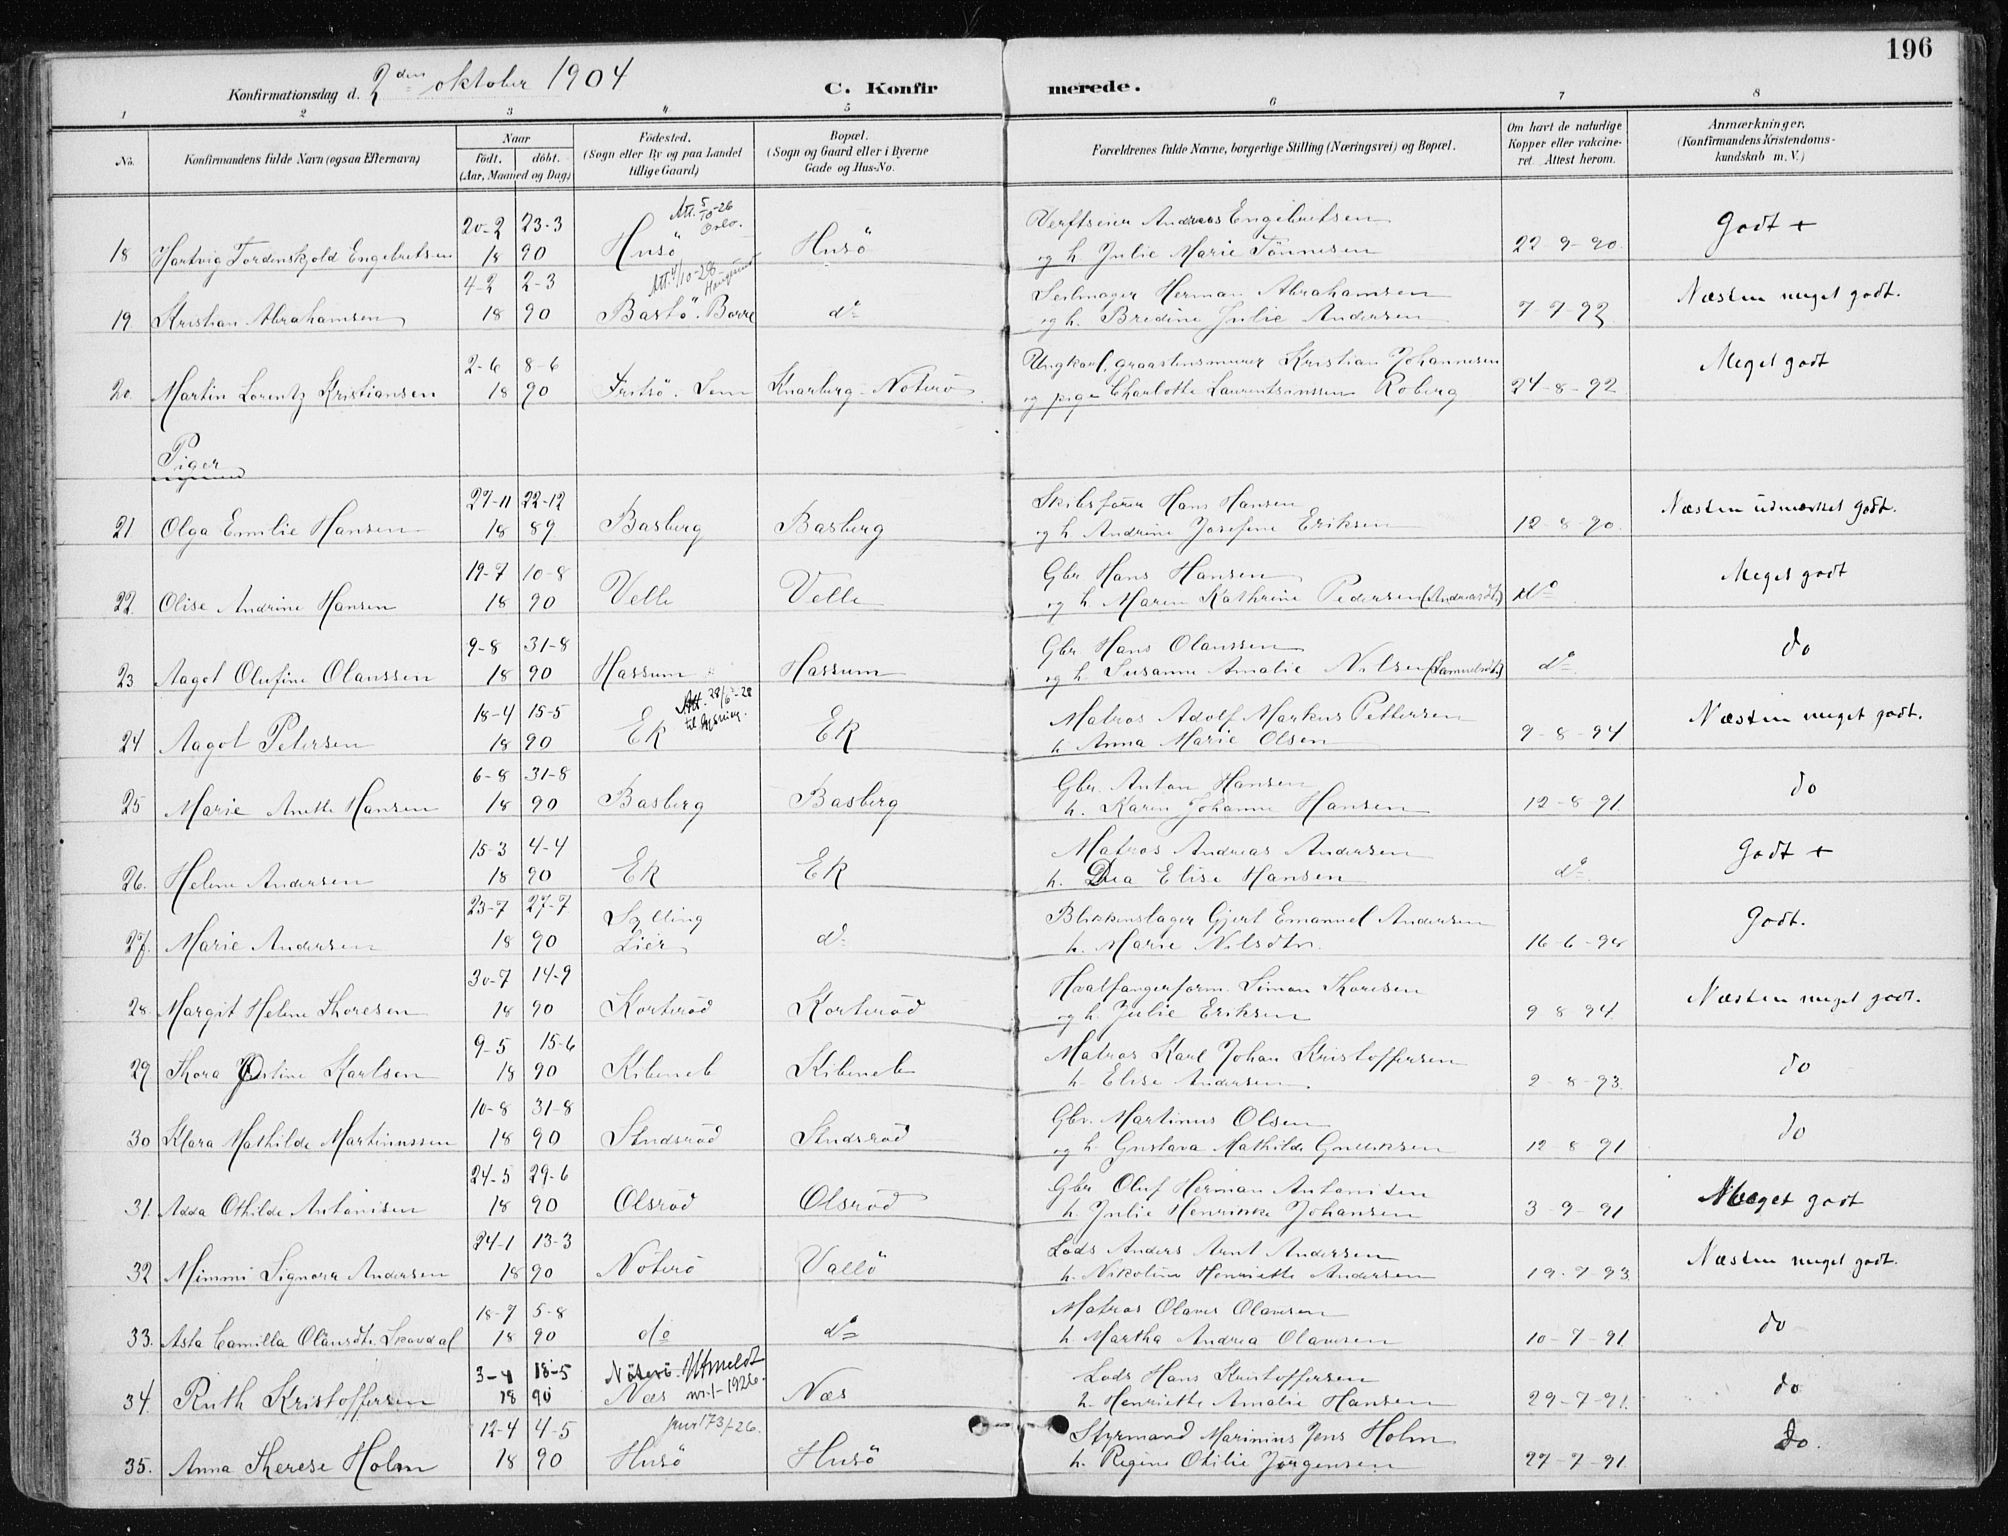 196
Konfirmationsdag d. 2den oktober 1904 C. Konfirmerede.
1 2 3 4 5 6 7 8
No. Konfirmandens fulde Navn (ogsaa Efternavn) Naar født. døbt. (Aar, Maaned og Dag) Fødested. (Sogn eller By og paa Landet tillige Gaard) Bopæl. (Sogn og Gaard eller i Byerne Gade og Hus-No. Forældrenes fulde Navne, borgerlige Stilling (Næringsvei) og Bopæl. Om havt de naturlige Kopper eller vakcineret. Attest herom. Anmærkninger. (Konfirmandens Kristendomskundskab m. V.)
20-2 23-3 Att. 5/10-26 Oslo. Verftseier Andreas Engebretsen Godt +
18 Hartvig Tordenskjold Engebretsen 18 90 Husö Husö og h. Julie Marie Tönnesen 22-9-90.
4-2 2-3 Att. 4/10-28 Seilmager Herman Abrahamsen Næsten meget godt.
19 Kristian Abrahamsen 18 90 Bastö. Borre do og h. Bredine Julie Andersen 7-7-93.
2-6 8-6 Ungkarl, graastensmurer Kristian Johannesen Meget godt
20. Martin Lorentz Kristiansen 18 90 Fritsö. Lem Knarberg-Nöterö og pige Charlotte Laurentsenssen Roberg 24-8-92
Piger
27-11 22-12 Skibsförer Hans Hansen Næsten udmærket godt.
21 Olga Emilie Hansen 18 89 Basberg Basberg og h. Andrine Josefine Eriksen 12-8-90.
19-7 10-8 Gbr Hans Hansen Meget godt
22. Olise Andrine Hansen 18 90 Velle Velle og h. Maren Kathrine Pedersen (Andreasdt.) do
9-8 31-8 Gbr Hans Olanssen do
23 Aagot Olufine Olanssen 18 90 Hassum Hassum og h. Susanne Amalie Nilsen (Samuelsdt.) do
18-4 15-5 Att. 28/6-28 til lysning. Matros Adolf Markus Pettersen Næsten meget godt.
24 Aagot Petersen 18 90 Ek Ek h. Anna Marie Olsen 9-8-94
6-8 31-8 Gbr. Anton Hansen do
25 Marie Anette Hansen 18 90 Basberg Basberg h. Karen Johanne Hansen 12-8-91.
15-3 4-4 Matros Andreas Andersen Godt +
26. Helene Andersen 18 90 Ek Ek h. Dea Elise Hansen do
23-7 27-7 Sylling Blikkenslager Gjert Emanuel Andersen Godt.
27. Marie Andersen 18 90 Lier do h. Marie Nilsdtr. 16-6-94
30-7 14-9 Hvalfangerform. Simon Thoresen Næsten meget godt.
28. Margit Helene Thoresen 18 90 Korteröd Korteröd og h. Julie Eriksen 9-8-94.
9-5 15-6 Matros Karl Johan Kristoffersen do
29 Thora Justine Karlsen 18 90 Kileneb Kileneb h. Elise Andersen. 2-8-93.
10-8 31-8 Gbr. Martinus Olsen do
30 Klara Mathilde Martinussen 18 90 Sundsröd Sundsröd og h. Gustava Mathilde Gulliksen 12-8-91
24-5 29-6 Gbr Oluf Herman Antonisen Meget godt
31. Adda Othilde Antonisen 18 90 Olsröd Olsröd h. Julie Henrikke Johansen 3-9-91
24-1 13-3 Lods Anders Arnt Andersen Næsten meget godt.
32 Mimmi Signora Andersen 18 90 Nöterö Vallö h. Nikoline Henriette Andersen 19-7-93.
18-7 5-8 Matros Olaves Olavesen do
33. Asta Camilla Olavsdtr. Skovdal 18 90 do do h. Martha Andrea Olavesen 10-7-91.
3-4 18-5 Nöterö. Utmeldt Lods Hans Kristoffersen do
34. Ruth Kristoffersen 18 90 Næs nr. 1-1926. Næs h. Henriette Amalie Hansen 29-7-91.
12-4 4-5 Styrmand Marinius Jens Holm do.
35. Anna Therese Holm 18 90 Husö Husö h. Regine Otilie Jörgensen 27-7-91